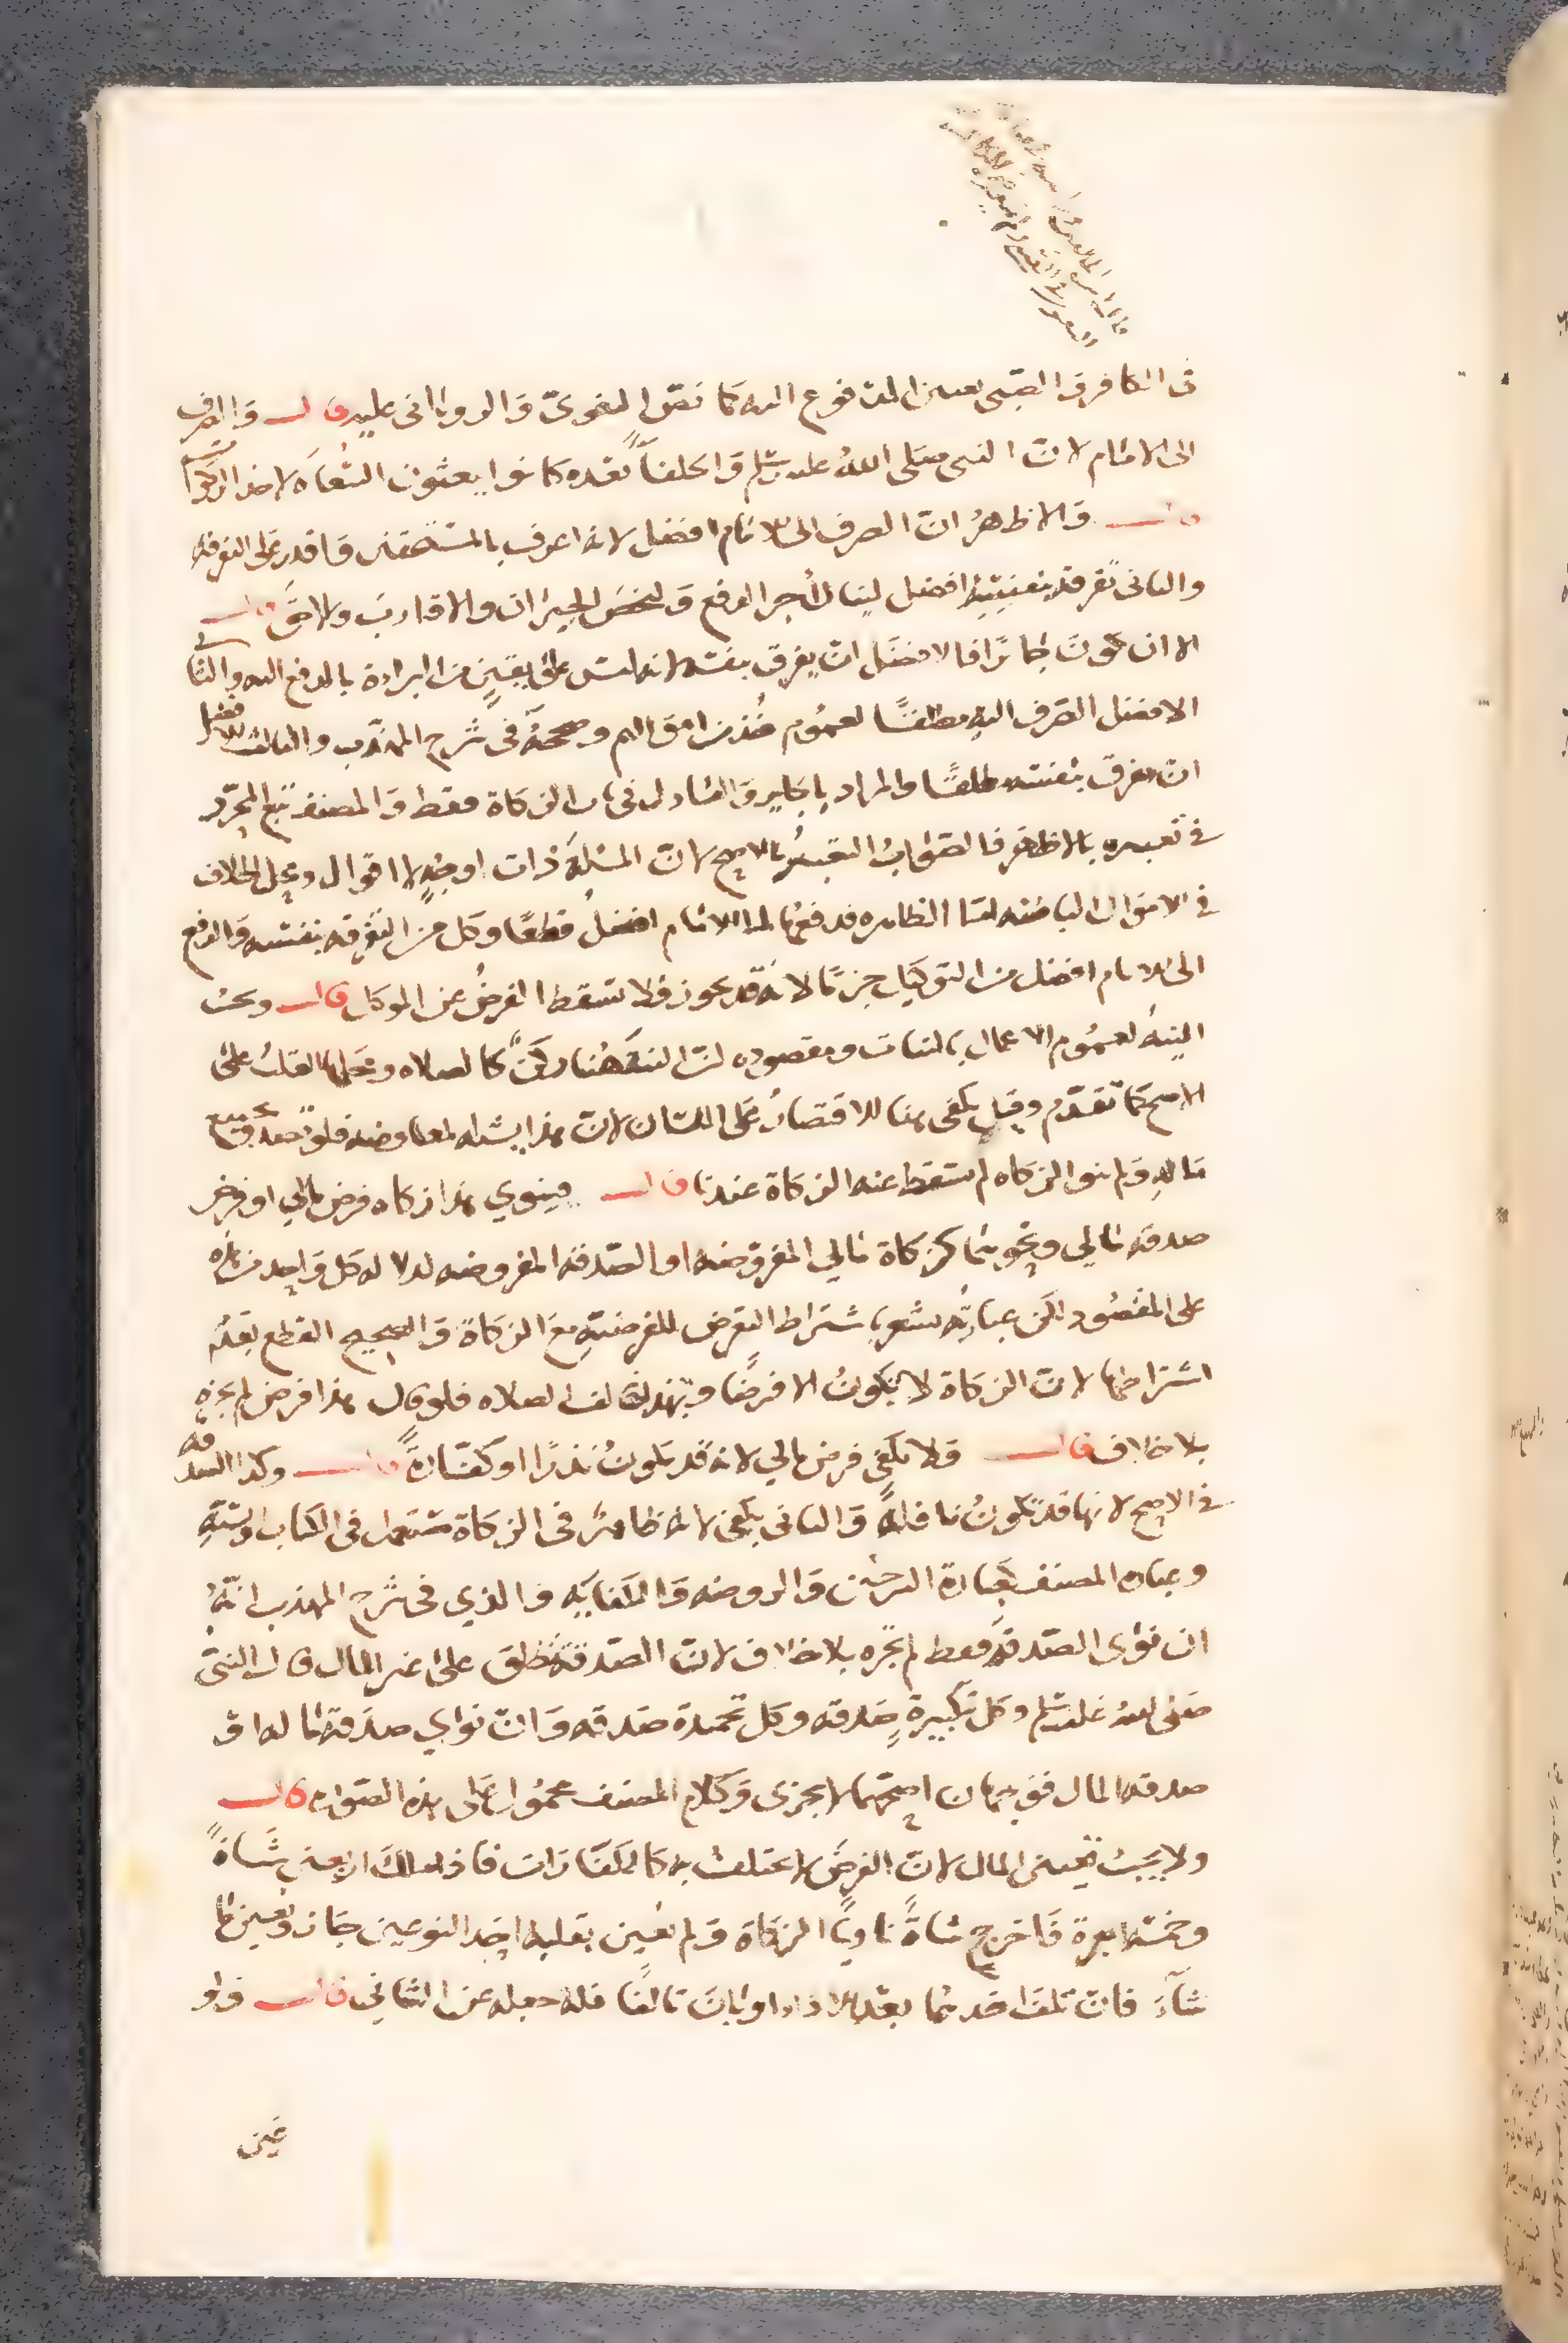 في الكافر والصبي تعيين المدفوع اليه كما نص البغوي والروياني عليه قال والصرف
الى الامام لان النبي صلى الله عليه وسلم والخلفآ بعده كانوا يبعثون السُّعاة لاخذ الزكوات
قال والاظهرُ ان الصرف الى الامام افضل لانه اعرف بالمستحقين واقدر على التفرقه
والثاني تفرقته بنفسه افضل لينال اجر الدفع وليخص الجيران والاقارب والاحق قال
الا ان يكون جائرا فالافضل ان يفرق بنفسه لانه ليس على يقين من البراءة بالدفع اليه والثاني
الافضل الصرف اليه مطلقًا لعموم خذ من اموالهم وصححه في شرح المهذب والثالث الافضل
ان يفرق بنفسه مطلقًا والمراد بالجاير والعادل في باب الزكاة فقط والمصنف تبع المحرر
في تعبيره بالاظهر فالصواب التعبير بالاصح لان المسئلة ذات اوجه لا اقوال ومحل الخلاف
في الاموال الباطنه اما الظاهره فدفعها الى الامام افضل قطعًا وكل من التفرقه بنفسه والدفع
الى الامام افضل من التوكيل جزمًا لانه قد يخون فلا تسقط الفرضُ عن الموكل قال وتجب
النية لعموم الاعمال بالنيات ومقصوده ان النية هنا ركنٌ كالصلاه ومحلها القلب على
الاصح كما تقدم وقيل يكفي هنا الاقتصارُ على اللسان لان هذا يشبه المعاوضه فلو تصدق بجميع
ماله ولم ينو الزكاه لم تسقط عنه الزكاة عندنا قال فينوي هذا زكاه فرض مالي او فرض
صدقه مالي ونحوهما كزكاة مالي المفروضه او الصدقه المفروضه لدلاله كل واحد من هذه
على المقصود لكن عبارته تشعر باشتراط التعرض للفرضية مع الزكاة والصحيح القطع بعدم
اشتراطها لان الزكاة لا تكونُ الا فرضًا وبهذا تخالف الصلاه فلو قال هذا فرض لم يجزه
بلا خلاف قال ولا يكفي فرض مالي لانه قد يكونُ نذرًا او كفارةً قال وكذا الصدقه
في الاصح لانها قد تكونُ نافلةً والثاني يكفي لانه ظاهرٌ في الزكاة مستعمل في الكتاب والسنة
وعباره المصنف كعبارة الشرحين والروضه والكفايه والذي في شرح المهذب انه
ان نوى الصدقة فقط لم تجزه بلا خلاف لان الصدقة تطلق على غير المال قال النبي
صلى الله عليه وسلم وكل تكبيرةٍ صدقه وكل تحميدة صدقه وان نوي صدقة ماله او
صدقه المال فوجهان اصحهما لا يجزي وكلام المصنف محمول على هذه الصوره قال
ولا يجب تعيين المال لان الفرض لا يختلف به كالكفارات فاذا ملك اربعين شاةً
وخمسة ابعرة فاخرج شاةً ناويًا الزكاة ولم يعين بقلبه احد النوعين جاز وتعينها
شآءَ فان تلف احدهما بعد الاداء او بان تالفًا فله جعله عن الثاني قال ولو
عين